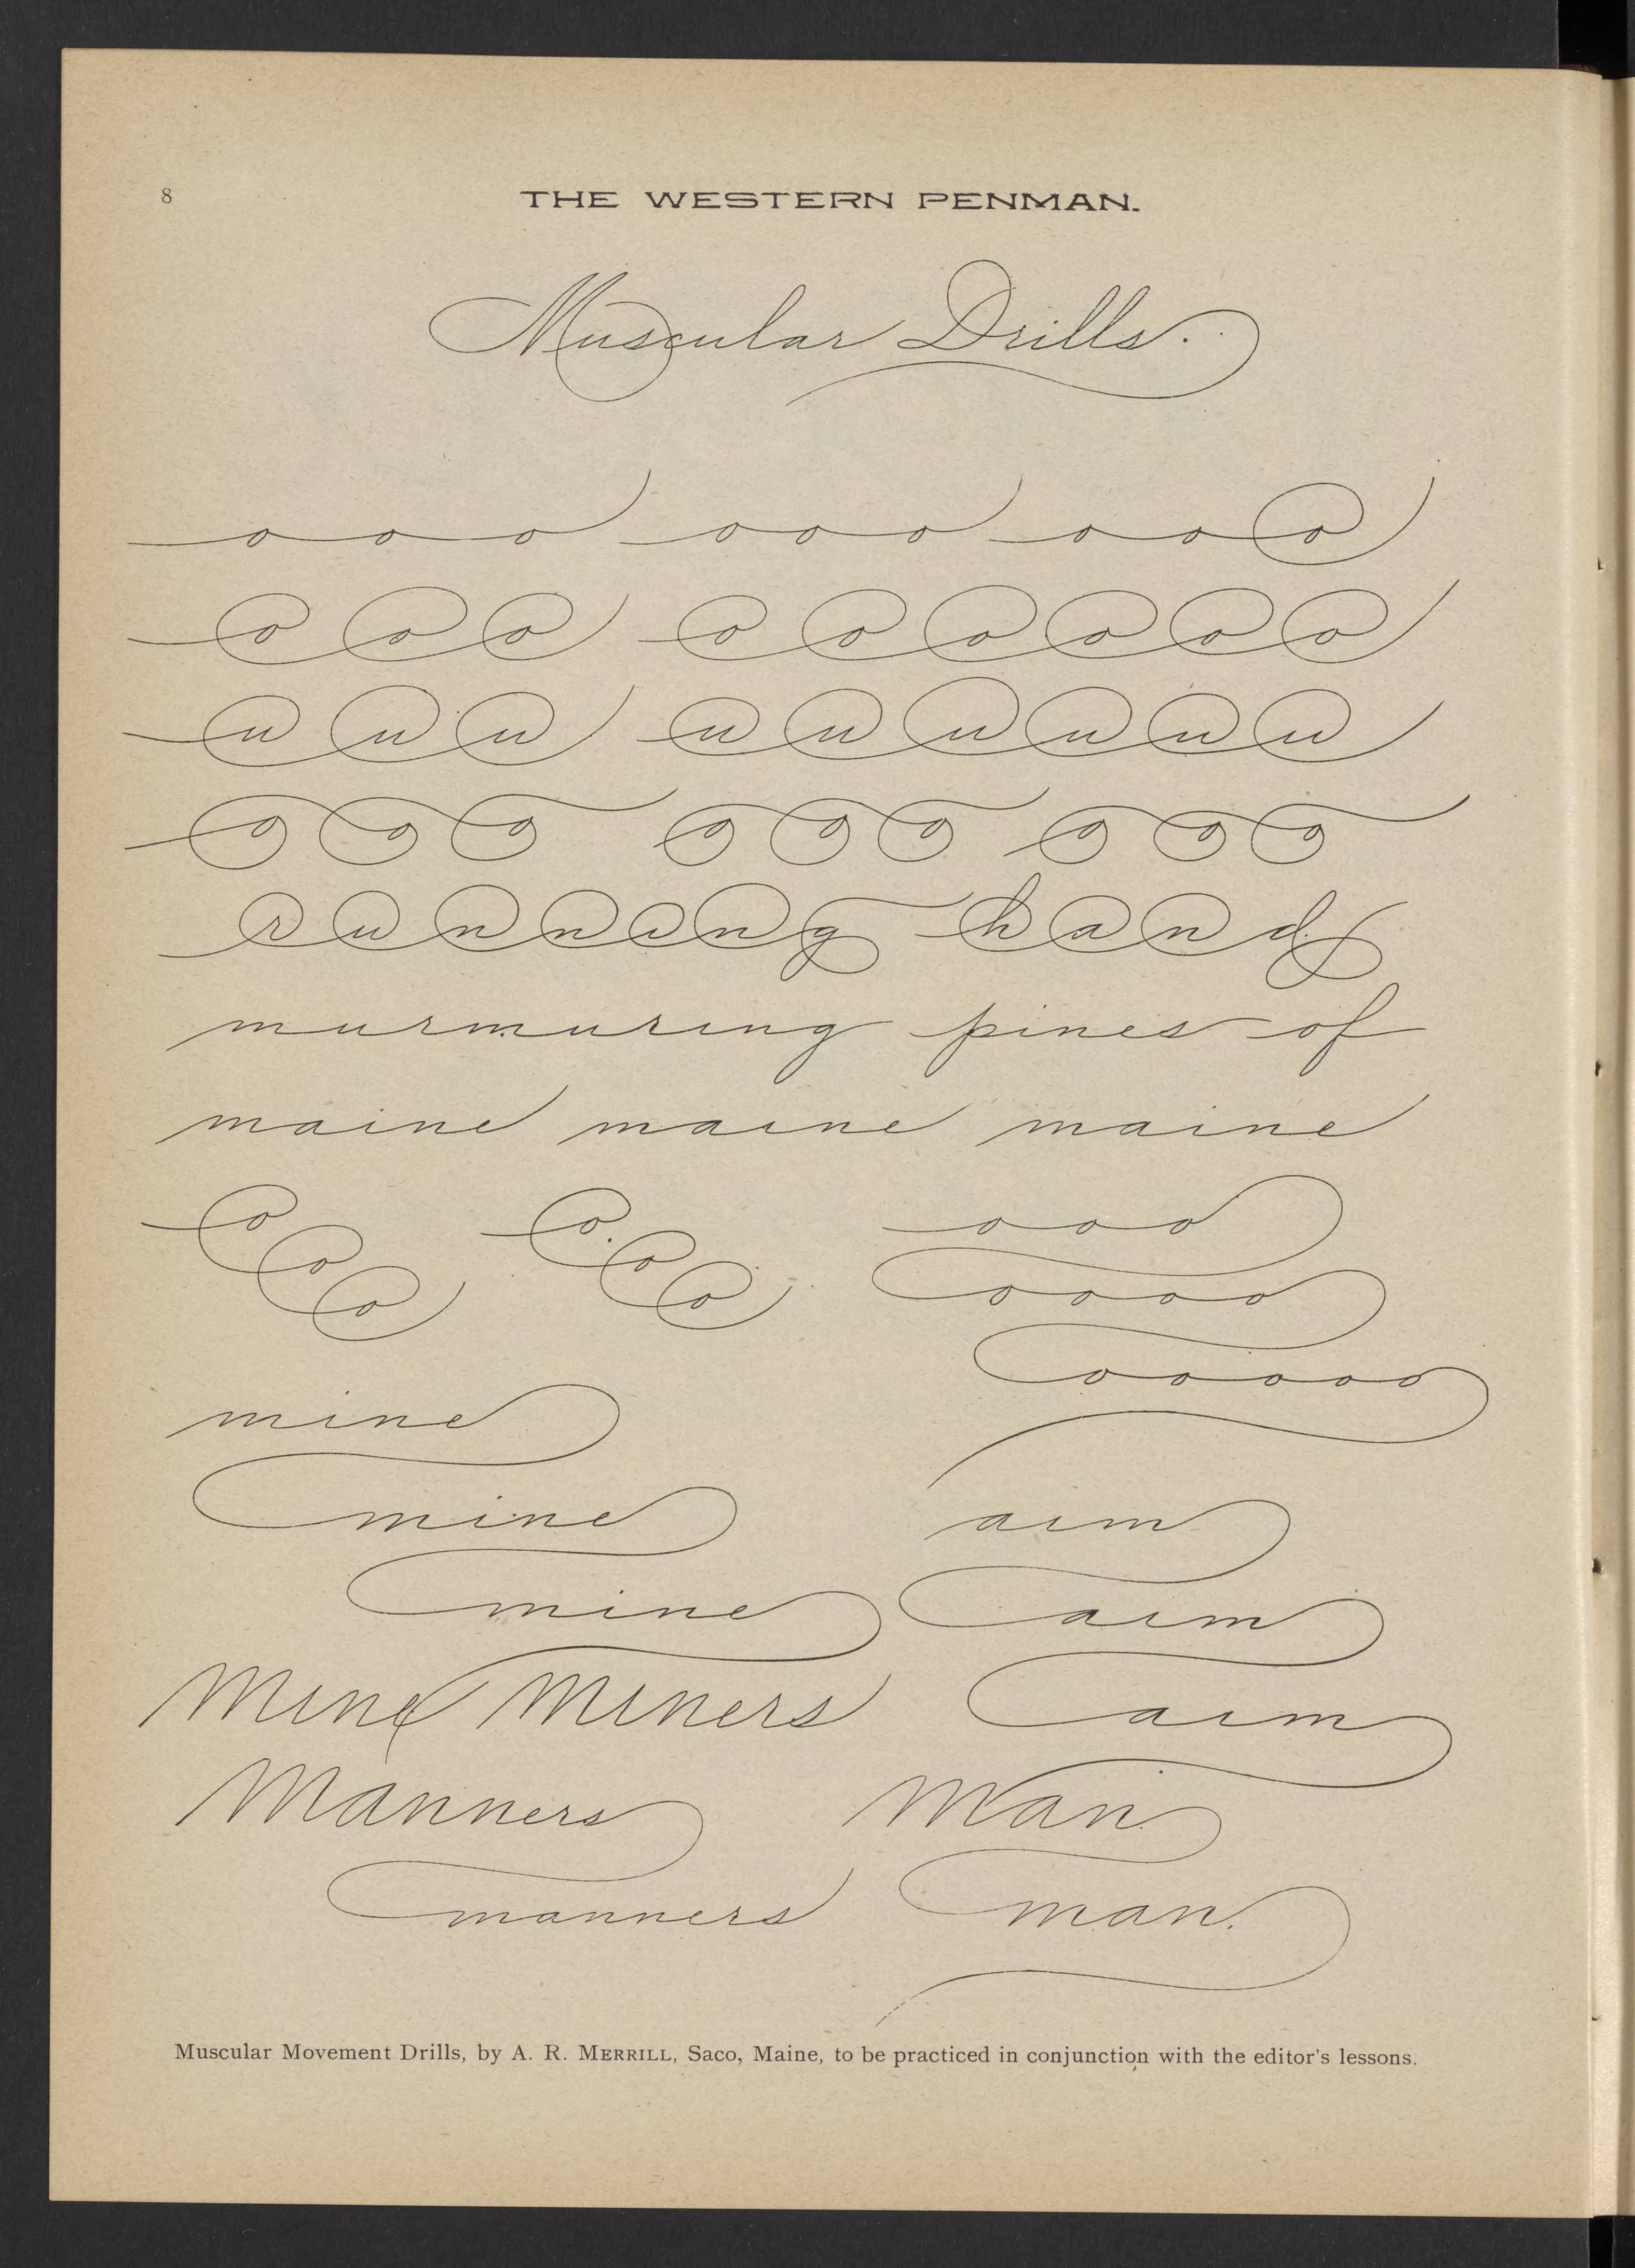 8
THE WESTERN PENMAN.
Muscular Drills.
o o o o o o o o o
o o o o o o o o o
u u u u u u u u u
o o o o o o o o o
running hand
murmuring pines of
maine maine maine
o o o o
o o o o o o o
o o o o o o o
mine
mine aim
mine aim
Mine Miners aim
Manners Man
manners man.
Muscular Movement Drills, by A. R. MERRILL, Saco, Maine, to be practiced in conjunction with the editor's lessons.